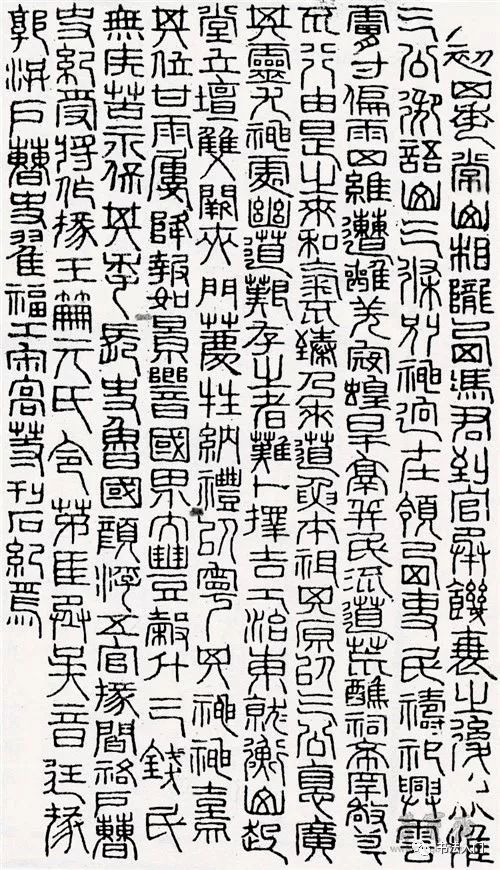 初四年常山相隴西馮君到官承饑衰之後惟
三公御語山三條別神迥在領西吏民禱祀興雲
膚寸偏雨四維遭離羌寇蝗旱鬲我民流道荒醮祠希罕敬奠
不行由是之來和氣不臻乃來道要本祖其原以三公悳廣
其靈尤神處幽道艱存之者難卜擇吉土治東就衡山起
堂立壇雙闕夾門薦牲納禮以寧其神神熹
其位甘雨屢降報如景響國界大豐穀斗三錢民
無疾苦永保其年長史魯國顏浮五官掾閻祐戶曹
史紀受將作掾王笧元氏令茅匡丞吳音廷掾
郭洪戶曹史翟福工宋高等刊石紀焉
书法入门